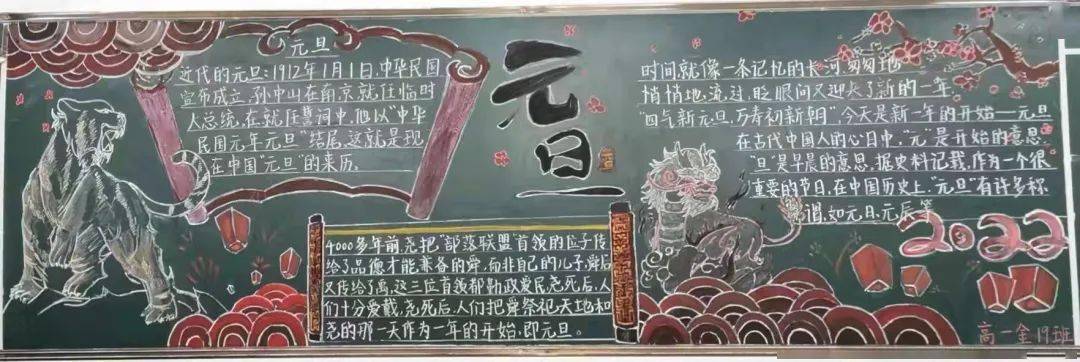 元旦
近代的元旦:1912年1月1日,中华民国
宣布成立,孙中山在南京就任临时
大总统,在就任誓词中,他以“中华
民国元年元旦”结尾,这就是现
在中国“元旦”的来历。
元旦
4000多年前尧把“部落联盟”首领的位子传
给了品德才能兼备的舜,而非自己的儿子,舜后
又传给了禹,这三位首领都勤政爱民,尧死后,人
们十分爱戴,尧死后,人们把舜祭祀天地和
尧的那一天作为一年的开始,即元旦。
时间就像一条记忆的长河匆匆地
悄悄地,流过,眨眼间又迎来了新的一年.
“四气新元旦,万寿初新朝”,今天是新一年的开始——元旦
在古代中国人的心目中,“元”是开始的意思,
“旦”是早晨的意思,据史料记载,作为一个很
重要的节日,在中国历史上,“元旦”有许多称
谓,如元日、元辰等
2022
高一金19班